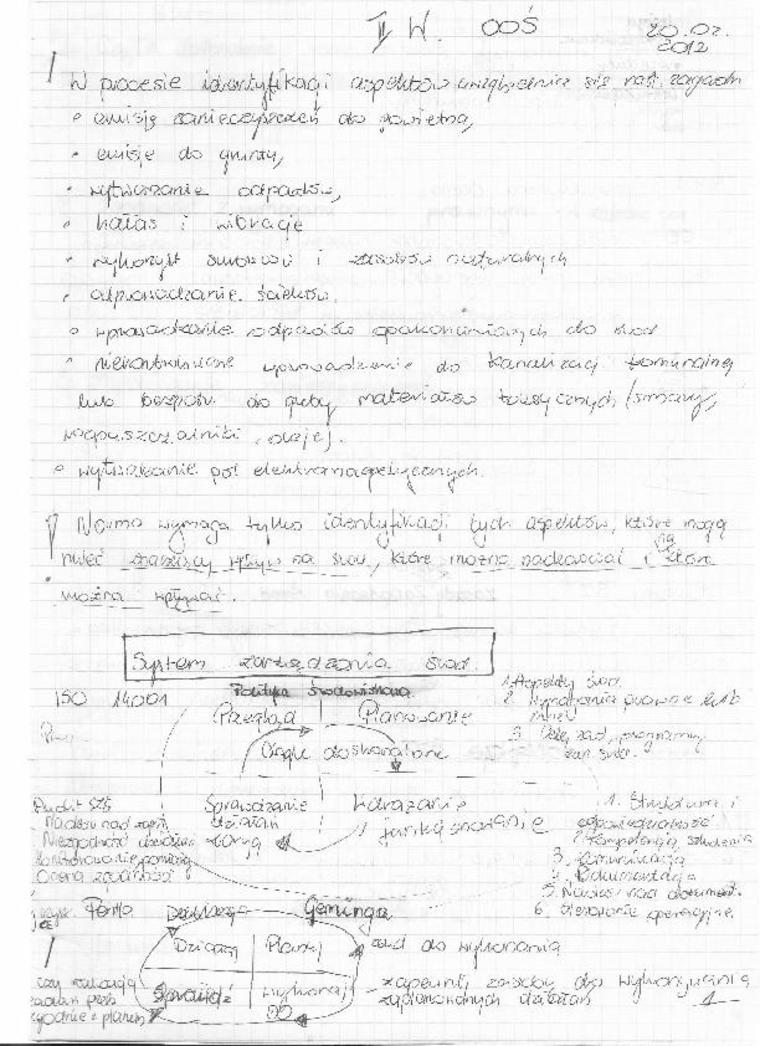 II W. OOŚ 20.02.2012
! W procesie identyfikacji aspektów uwzględnia się nast. zagadn
• emisję zanieczyszczeń do powietrza,
• emisje do gruntu,
• wytwarzanie odpadów,
• hałas i wibracje
• wykorzyst surowców i zasobów naturalnych
• odprowadzanie ścieków.
• wprowadzanie odpadów opakowaniowych do środ
• niekontrolowane wprowadzenie do kanalizacji komunalnej
lub bezpośr. do gleby materiałów toksycznych (smary,
rozpuszczalniki, oleje).
• wytwarzanie pól elektromagnetycznych.
! Norma wymaga tylko identyfikacji tych aspektów, które mogą
mieć znaczący wpływ na środ, które można nadzorować i na które
można wpływać.
System zarządzania środ.
ISO 14001 Polityka Środowiskowa
1. Aspekty środ.
Przegląd Planowanie
2. Wymagania prawne lub inne
3. Cele, zad, programy
Ciągłe doskonalenie
Audit SZŚ
Nadzór nad zapis.
Niezgodność
Monitorowanie pomiary
Ocena zgodności
Sprawdzanie działań
Wdrażanie i funkcjonowanie
1. Struktura i odpowiedzialność
2. Kompetencja, szkolenia
3. Komunikacja
4. Dokumentacja
5. Nadzór nad dokument.
6. Sterowanie operacyjne.
Pętla Deminga
Działaj Planuj cel do wykonania
Sprawdź Wykonaj - zapewnij zasoby do wykonywania
zaplanowanych działań
czy realizacja
zgodnie z planem